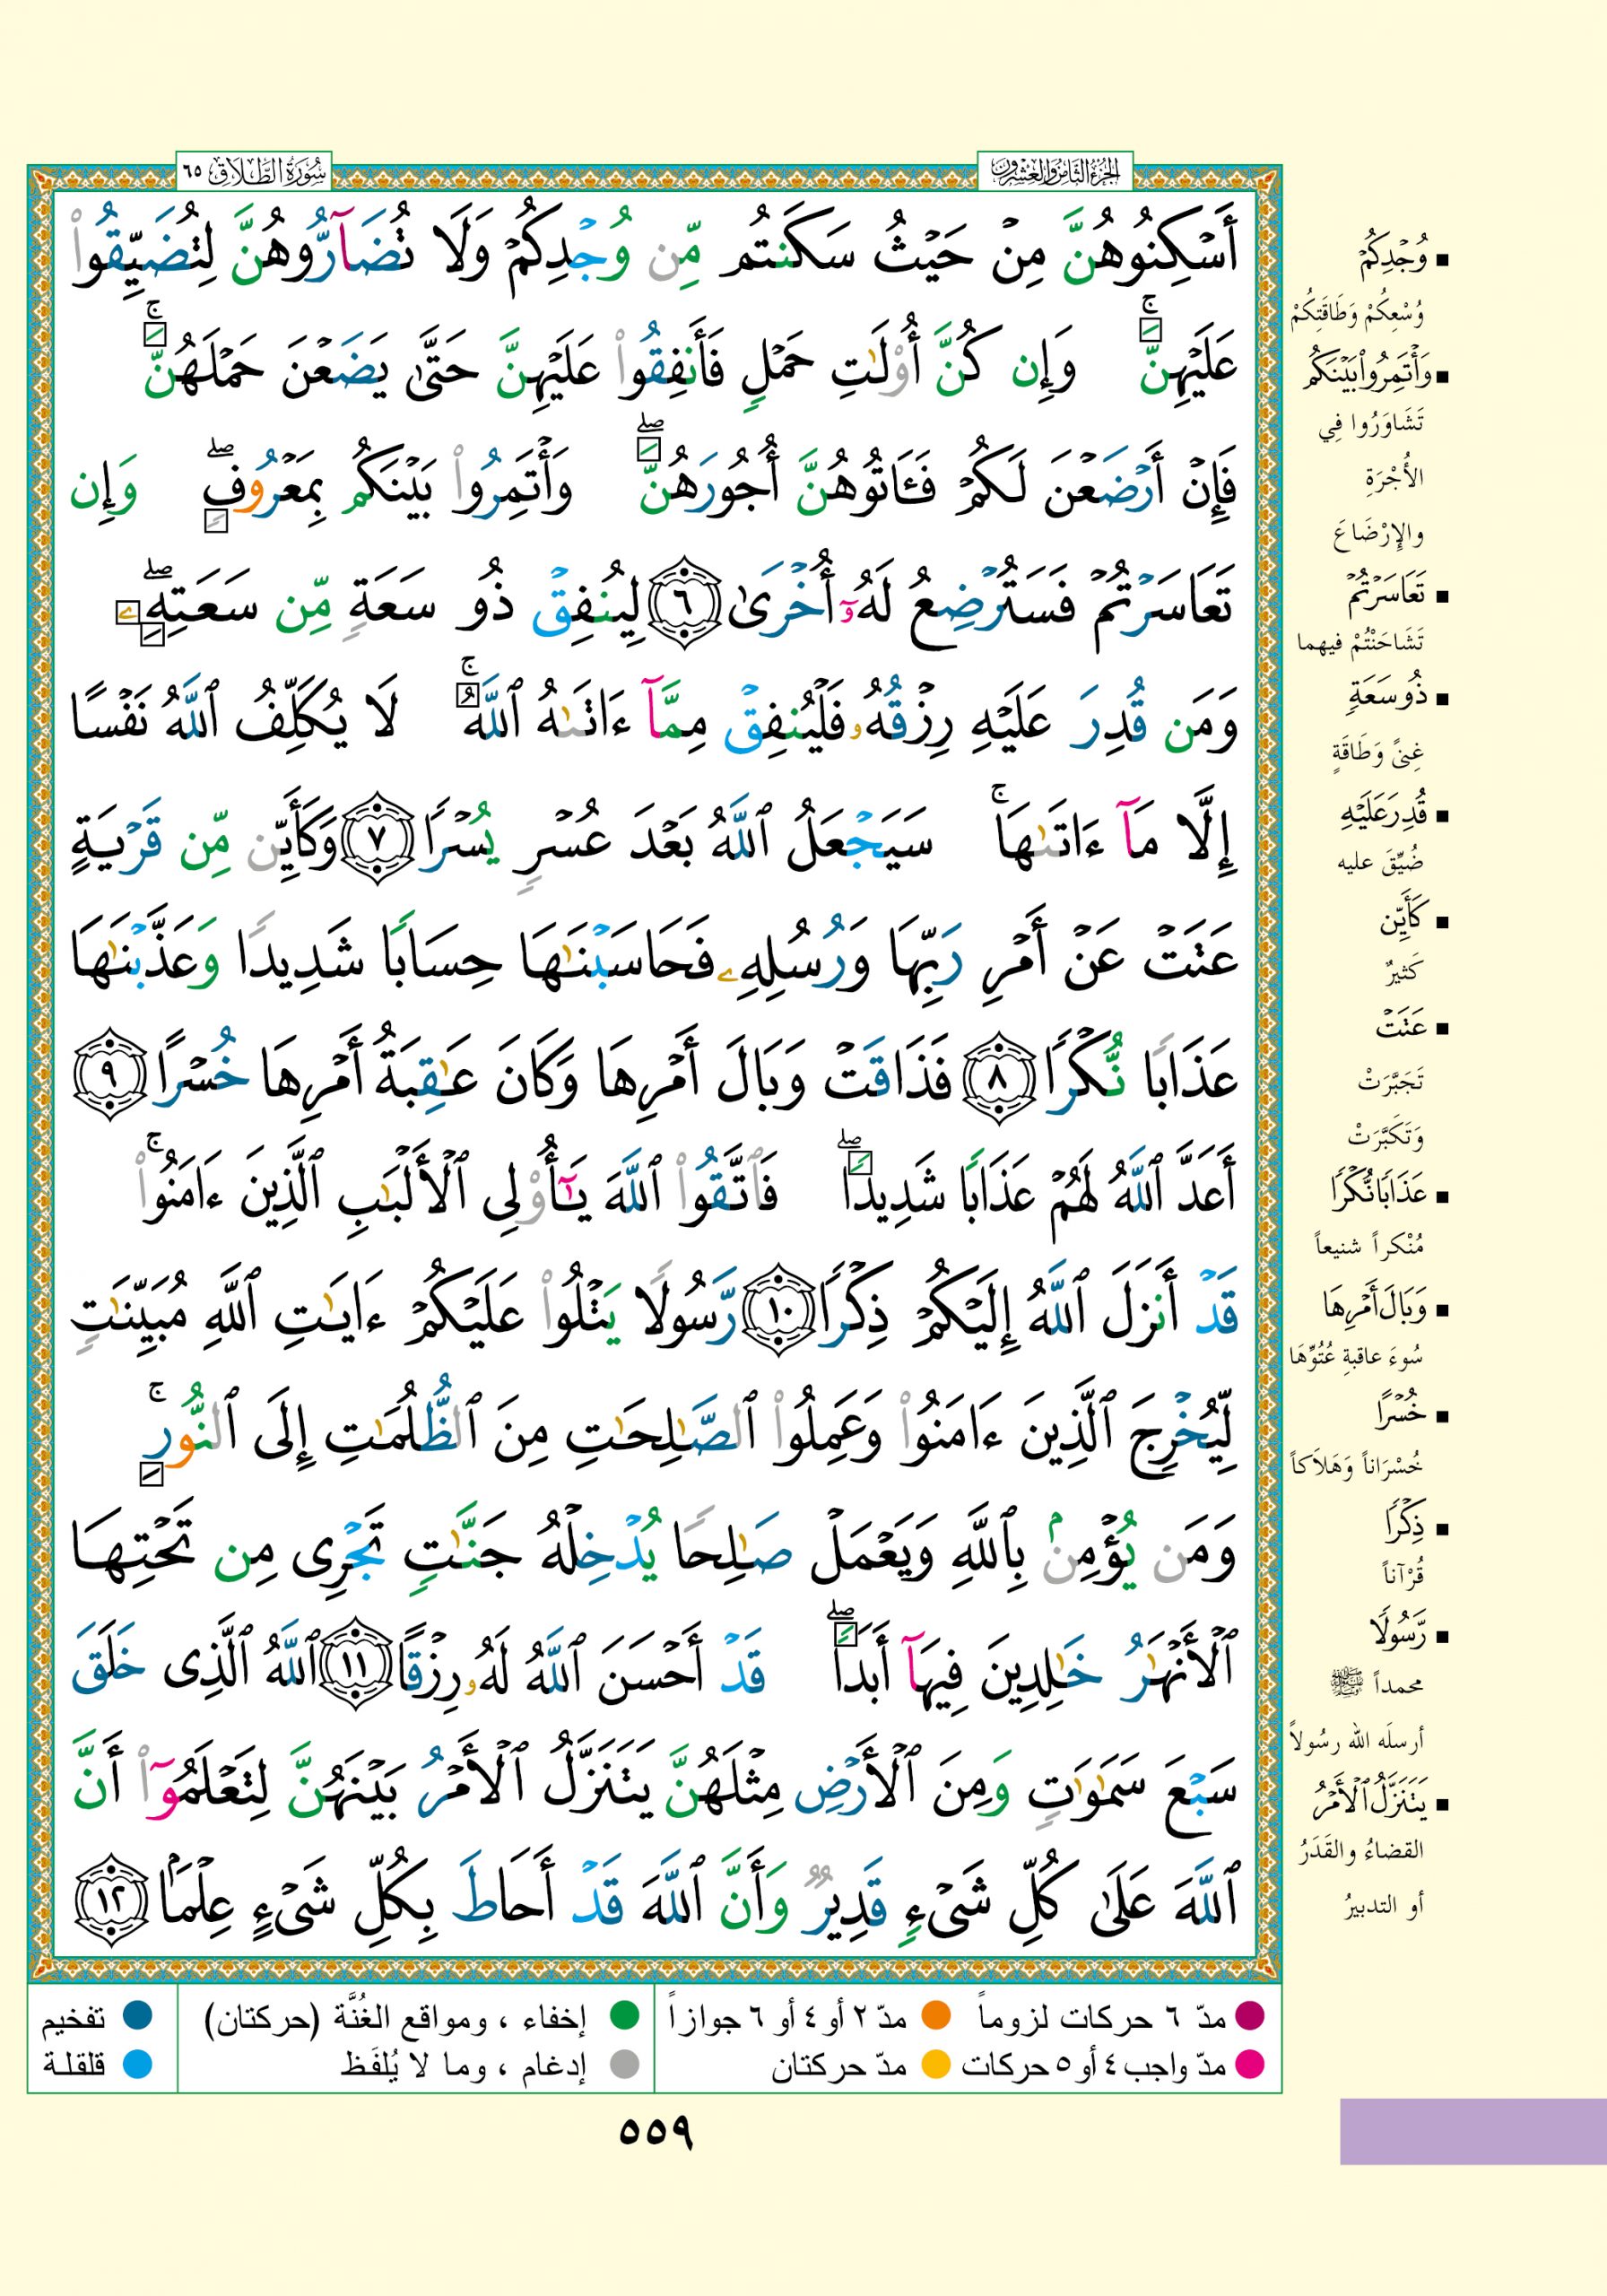 الجزء الثامن والعشرون
سُورَةُ الطَّلَاق ٦٥
أَسْكِنُوهُنَّ مِنْ حَيْثُ سَكَنتُم مِّن وُجْدِكُمْ وَلَا تُضَآرُّوهُنَّ لِتُضَيِّقُوا۟
عَلَيْهِنَّ ۚ وَإِن كُنَّ أُو۟لَـٰتِ حَمْلٍ فَأَنفِقُوا۟ عَلَيْهِنَّ حَتَّىٰ يَضَعْنَ حَمْلَهُنَّ ۚ
فَإِنْ أَرْضَعْنَ لَكُمْ فَـَٔاتُوهُنَّ أُجُورَهُنَّ ۖ وَأْتَمِرُوا۟ بَيْنَكُم بِمَعْرُوفٍ ۖ وَإِن
تَعَاسَرْتُمْ فَسَتُرْضِعُ لَهُۥٓ أُخْرَىٰ ٦ لِيُنفِقْ ذُو سَعَةٍ مِّن سَعَتِهِۦ ۖ
وَمَن قُدِرَ عَلَيْهِ رِزْقُهُۥ فَلْيُنفِقْ مِمَّآ ءَاتَىٰهُ ٱللَّهُ ۚ لَا يُكَلِّفُ ٱللَّهُ نَفْسًا
إِلَّا مَآ ءَاتَىٰهَا ۚ سَيَجْعَلُ ٱللَّهُ بَعْدَ عُسْرٍ يُسْرًا ٧ وَكَأَيِّن مِّن قَرْيَةٍ
عَتَتْ عَنْ أَمْرِ رَبِّهَا وَرُسُلِهِۦ فَحَاسَبْنَـٰهَا حِسَابًا شَدِيدًا وَعَذَّبْنَـٰهَا
عَذَابًا نُّكْرًا ٨ فَذَاقَتْ وَبَالَ أَمْرِهَا وَكَانَ عَـٰقِبَةُ أَمْرِهَا خُسْرًا ٩
أَعَدَّ ٱللَّهُ لَهُمْ عَذَابًا شَدِيدًا ۖ فَٱتَّقُوا۟ ٱللَّهَ يَـٰٓأُو۟لِى ٱلْأَلْبَـٰبِ ٱلَّذِينَ ءَامَنُوا۟ ۚ
قَدْ أَنزَلَ ٱللَّهُ إِلَيْكُمْ ذِكْرًا ١٠ رَّسُولًا يَتْلُوا۟ عَلَيْكُمْ ءَايَـٰتِ ٱللَّهِ مُبَيِّنَـٰتٍ
لِّيُخْرِجَ ٱلَّذِينَ ءَامَنُوا۟ وَعَمِلُوا۟ ٱلصَّـٰلِحَـٰتِ مِنَ ٱلظُّلُمَـٰتِ إِلَى ٱلنُّورِ ۚ
وَمَن يُؤْمِنۢ بِٱللَّهِ وَيَعْمَلْ صَـٰلِحًا يُدْخِلْهُ جَنَّـٰتٍ تَجْرِى مِن تَحْتِهَا
ٱلْأَنْهَـٰرُ خَـٰلِدِينَ فِيهَآ أَبَدًا ۖ قَدْ أَحْسَنَ ٱللَّهُ لَهُۥ رِزْقًا ١١ ٱللَّهُ ٱلَّذِى خَلَقَ
سَبْعَ سَمَـٰوَٰتٍ وَمِنَ ٱلْأَرْضِ مِثْلَهُنَّ يَتَنَزَّلُ ٱلْأَمْرُ بَيْنَهُنَّ لِتَعْلَمُوٓا۟ أَنَّ
ٱللَّهَ عَلَىٰ كُلِّ شَىْءٍ قَدِيرٌ وَأَنَّ ٱللَّهَ قَدْ أَحَاطَ بِكُلِّ شَىْءٍ عِلْمًۢا ١٢
▪ وُجْدِكُمْ
وُسْعِكُمْ وَطَاقَتِكُمْ
▪ وَأْتَمِرُوا۟ بَيْنَكُم
تَشَاوَرُوا فِي
الأُجْرَةِ
والإِرْضَاعَ
▪ تَعَاسَرْتُمْ
تَشَاحَنْتُمْ فيهما
▪ ذُو سَعَةٍ
غِنىً وَطَاقَةٍ
▪ قُدِرَ عَلَيْهِ
ضُيِّقَ عليه
▪ كَأَيِّن
كَثيرٌ
▪ عَتَتْ
تَجَبَّرَتْ
وَتَكَبَّرَتْ
▪ عَذَابًا نُّكْرًا
مُنْكراً شنيعاً
▪ وَبَالَ أَمْرِهَا
سُوءَ عاقبةِ عُتُوِّهَا
▪ خُسْرًا
خُسْرَاناً وَهَلاَكاً
▪ ذِكْرًا
قُرْآناً
▪ رَّسُولًا
محمداً ﷺ
أرسلَه الله رسُولاً
▪ يَتَنَزَّلُ ٱلْأَمْرُ
القضاءُ والقَدَرُ
أو التدبيرُ
مدّ ٦ حركات لزوماً مدّ ٢ أو ٤ أو ٦ جوازاً إخفاء ، ومواقع الغُنَّة (حركتان) تفخيم
مدّ واجب ٤ أو ٥ حركات مدّ حركتان إدغام ، وما لا يُلفَظ قلقلة
٥٥٩